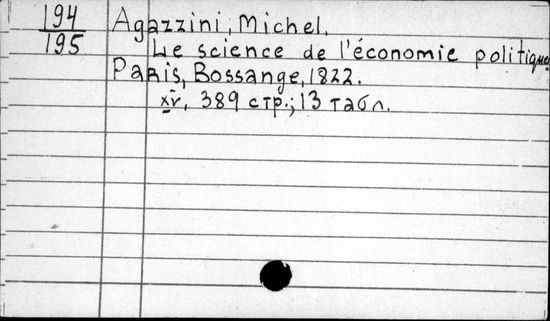 194
195
Agazzini, Michel.
Le science de l'économie politique
Paris, Bossange, 1822.
xv, 389 стр.; 13 табл.